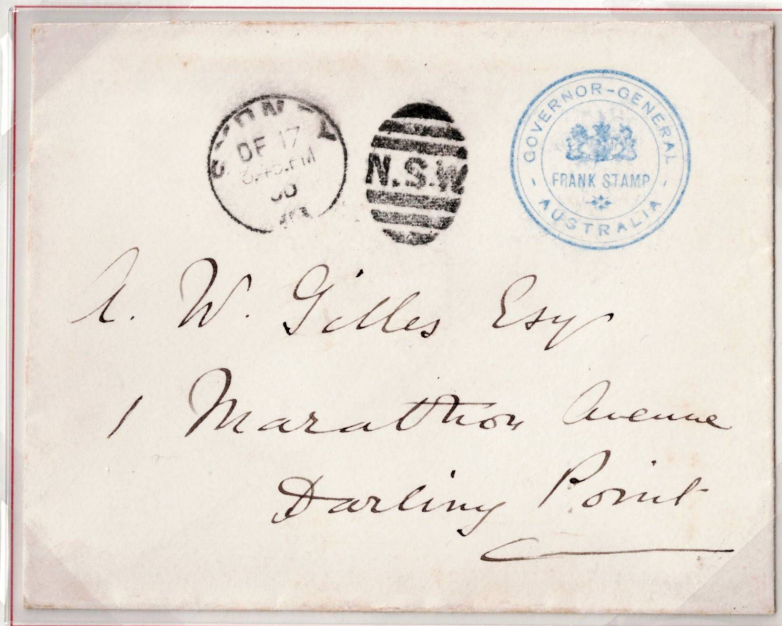 SYDNEY
DE 17
PM
N.S.W
GOVERNOR-GENERAL
FRANK STAMP
AUSTRALIA
A. W. Gilles Esq
1 Marathon Avenue
Darling Point